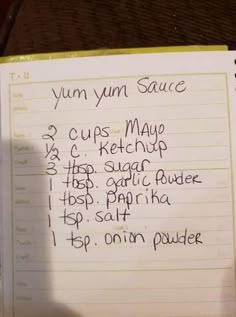 yum yum Sauce
2 cups Mayo
1/2 c. Ketchup
3 tbsp. sugar
1 tbsp. garlic Powder
1 tbsp. paprika
1 tsp. salt
1 tsp. onion powder